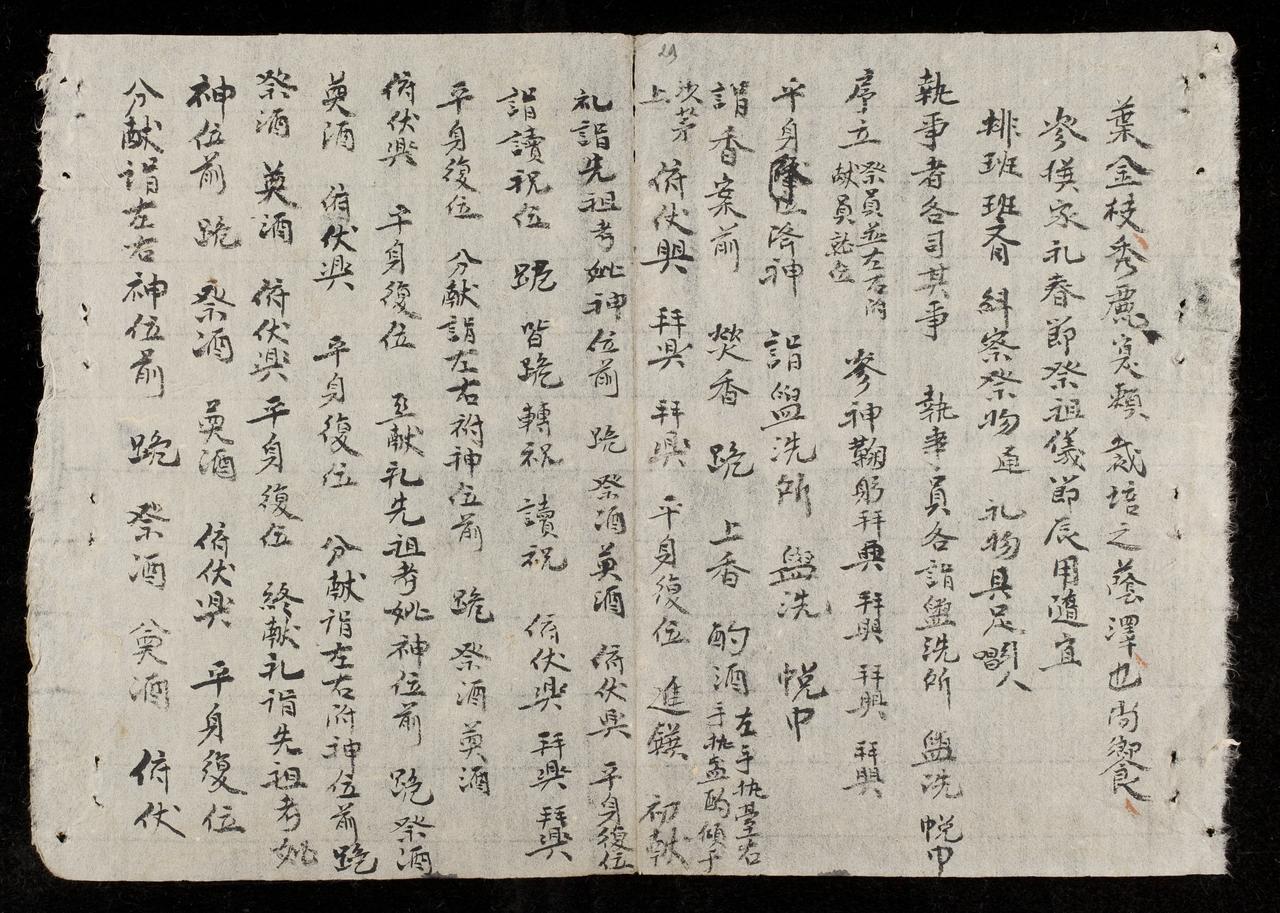 29
葉金枝秀麗寔賴裁培之蔭澤也尚饗
參撰家礼春節祭祖儀節辰用隨宜
排班班齊糾察祭物 礼物具足唱引人
執事者各司其事 執事員各詣盥洗所 盥洗 帨巾
序立 祭員並左右附 獻員就位 參神鞠躬拜興 拜興 拜興 拜興
平身降神 詣盥洗所 盥洗 帨巾
詣香案前 焚香 跪 上香 酌酒 左手执臺右手执盃酌傾于
沙茅上 俯伏興 拜興 拜興 平身復位 進饌 初献
礼詣先祖考妣神位前 跪 祭酒 奠酒 俯伏興 平身復位
詣讀祝位 跪 皆跪 轉祝 讀祝 俯伏興 拜興 拜興
平身復位 分献詣左右祔神位前 跪 祭酒 奠酒
俯伏興 平身復位 亞献礼先祖考妣神位前 跪 祭酒
奠酒 俯伏興 平身復位 分献詣左右附神位前 跪
祭酒 奠酒 俯伏興 平身復位 終献礼詣先祖考妣
神位前 跪 祭酒 奠酒 俯伏興 平身復位
分献詣左右神位前 跪 祭酒 奠酒 俯伏